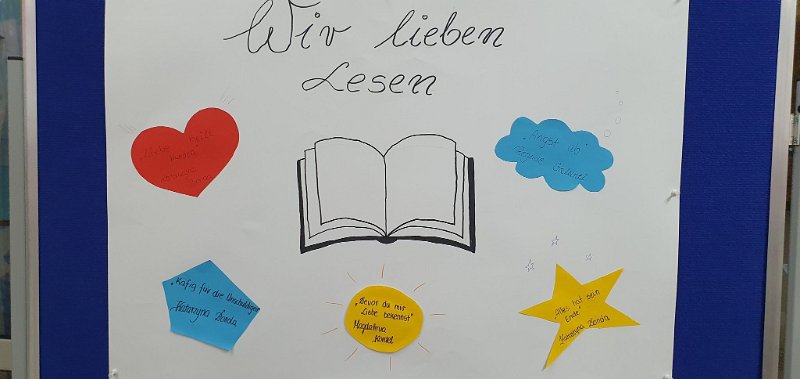 Wir lieben
Lesen
"Angst
"Käfig für die Unschuldigen"
Katarzyna Bonda
"Bevor du mir
Liebe bekennst"
Magdalena
Kordel
"Alles hat sein
Ende"
Katarzyna Bonda